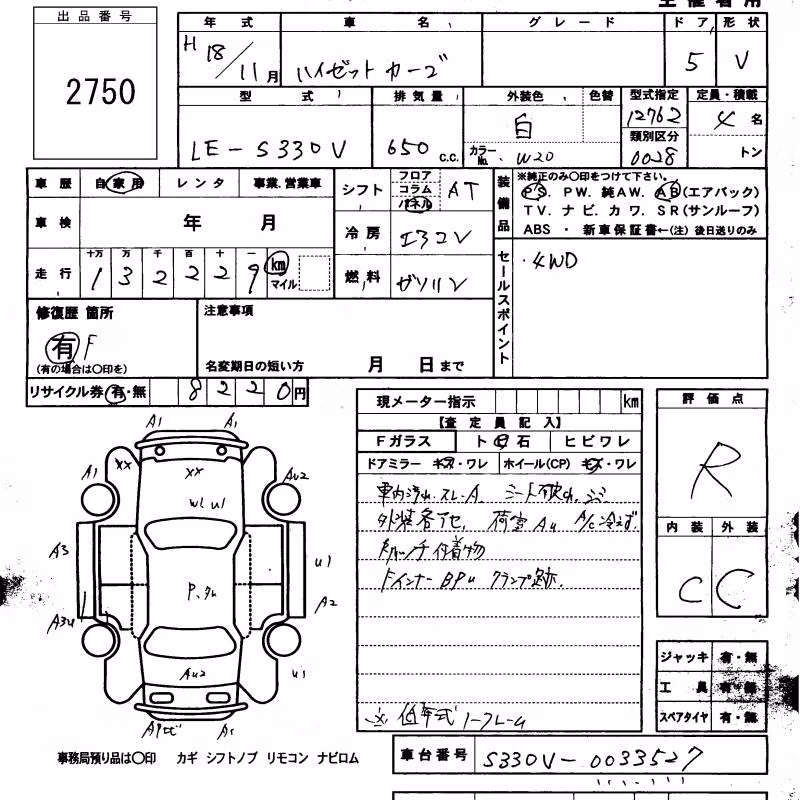 出品番号
2750
年式 車名 グレード ドア 形状
H 18/11月 ハイゼット カーゴ 5 V
型式 排気量 外装色 色替 型式指定 定員・積載
12762 4名
LE-S330V 650 c.c. 白 類別区分
カラーNo. W20 0028 トン
車歴 自家用 レンタ 事業.営業車
シフト フロア コラム パネル AT
装備品
※純正のみ○印をつけて下さい。
PS. PW. 純AW. AB(エアバック)
TV. ナビ. カワ. SR(サンルーフ)
ABS ・ 新車保証書←(注) 後日送りのみ
車検 年 月
冷房 エアコン
走行 十万 万 千 百 十 一
1 3 2 2 2 9 km マイル
燃料 ガソリン
セールスポイント
・4WD
修復歴 箇所
有 F
(有の場合は○印を)
注意事項
名変期日の短い方 月 日まで
リサイクル券 有・無 8220円
現メーター指示 km
【査定員記入】
Fガラス ト石 ヒビワレ
ドアミラー キズ・ワレ ホイール(CP) キズ・ワレ
車内汚れ.スレ.A. シート破れ.シミ
外装各キセ. 荷室Au A/C冷えず.
付着物
Fインナー BPu クランプ跡.
低年式
評価点
R
内装 外装
C C
ジャッキ 有・無
工具 有・無
スペアタイヤ 有・無
A1 A1
A1 XX XX Au2
W1 U1
A3 U1
P.
A3U A2
Au2 U1
事務局預り品は○印 カギ シフトノブ リモコン ナビロム
車台番号 S330V-0033527